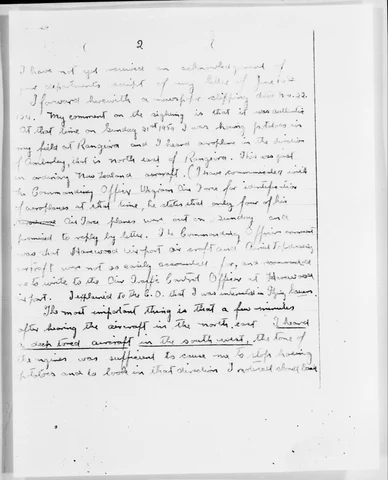 2
I have not yet received an acknowledgment of
your departments receipt of my letter of June
I forward herewith a newspaper clipping
My comment on the sighting is that it was authentic
At that time on Sunday 31st 1959 I was hoeing potatoes in
my field at Rangiora and I heard aeroplane in the direction
of that is north east of Rangiora. This was just
an ordinary New Zealand aircraft. (I have communicated with
the Commanding Officer Wigram Air Force for identification
of aeroplanes at that time, he states that only four of his
Air Force planes were out on Sunday and
promised to reply by letter. The Commanding Officers comment
was that Harewood Airport aircraft and
aircraft were not so easily accounted for, and
me to write to the Air Traffic Control Officer at Harewood
Airport. I explained to the C.O. that I was interested in Flying Saucers
The most important thing is that a few minutes
after hearing the aircraft in the north east I heard
a deep toned aircraft in the south west, the tone of
the engines was sufficient to cause me to stop hoeing
potatoes and to look in that direction I noticed cloud